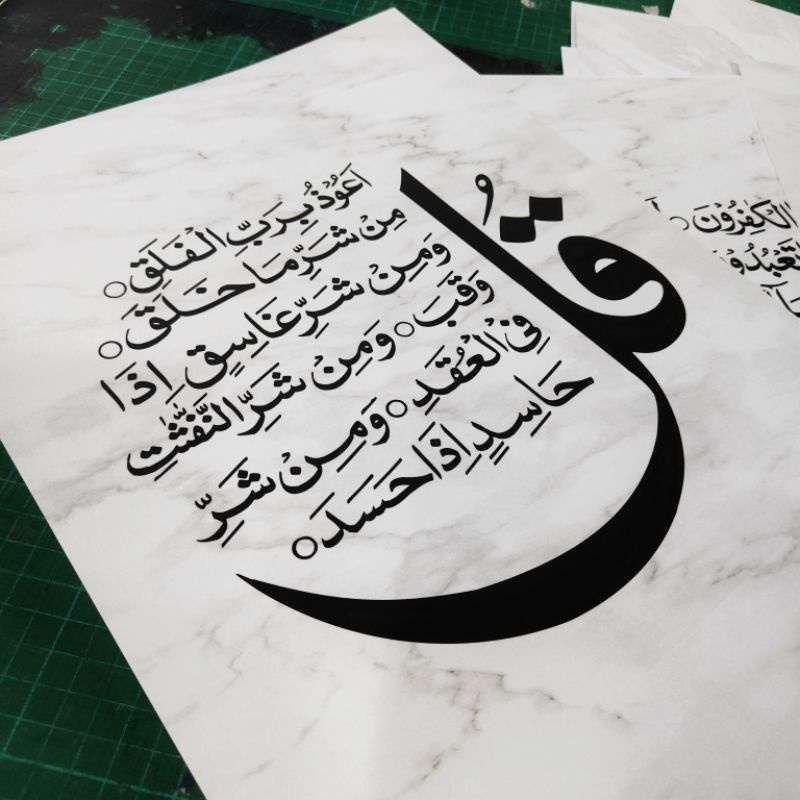 قُلْ
اَعُوْذُ بِرَبِّ الْفَلَقِ ○
مِنْ شَرِّ مَا خَلَقَ ○
وَمِنْ شَرِّ غَاسِقٍ اِذَا
وَقَبَ ○ وَمِنْ شَرِّ النَّفّٰثٰتِ
فِى الْعُقَدِ ○ وَمِنْ شَرِّ
حَاسِدٍ اِذَا حَسَدَ ○
الْكٰفِرُوْنَ
تَعْبُدُوْ